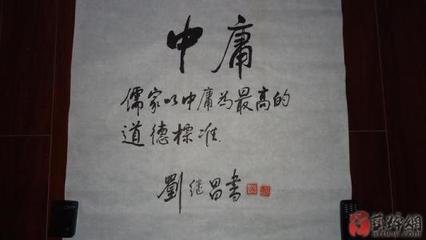 中庸
儒家以中庸为最高的
道德標准
劉继昌書